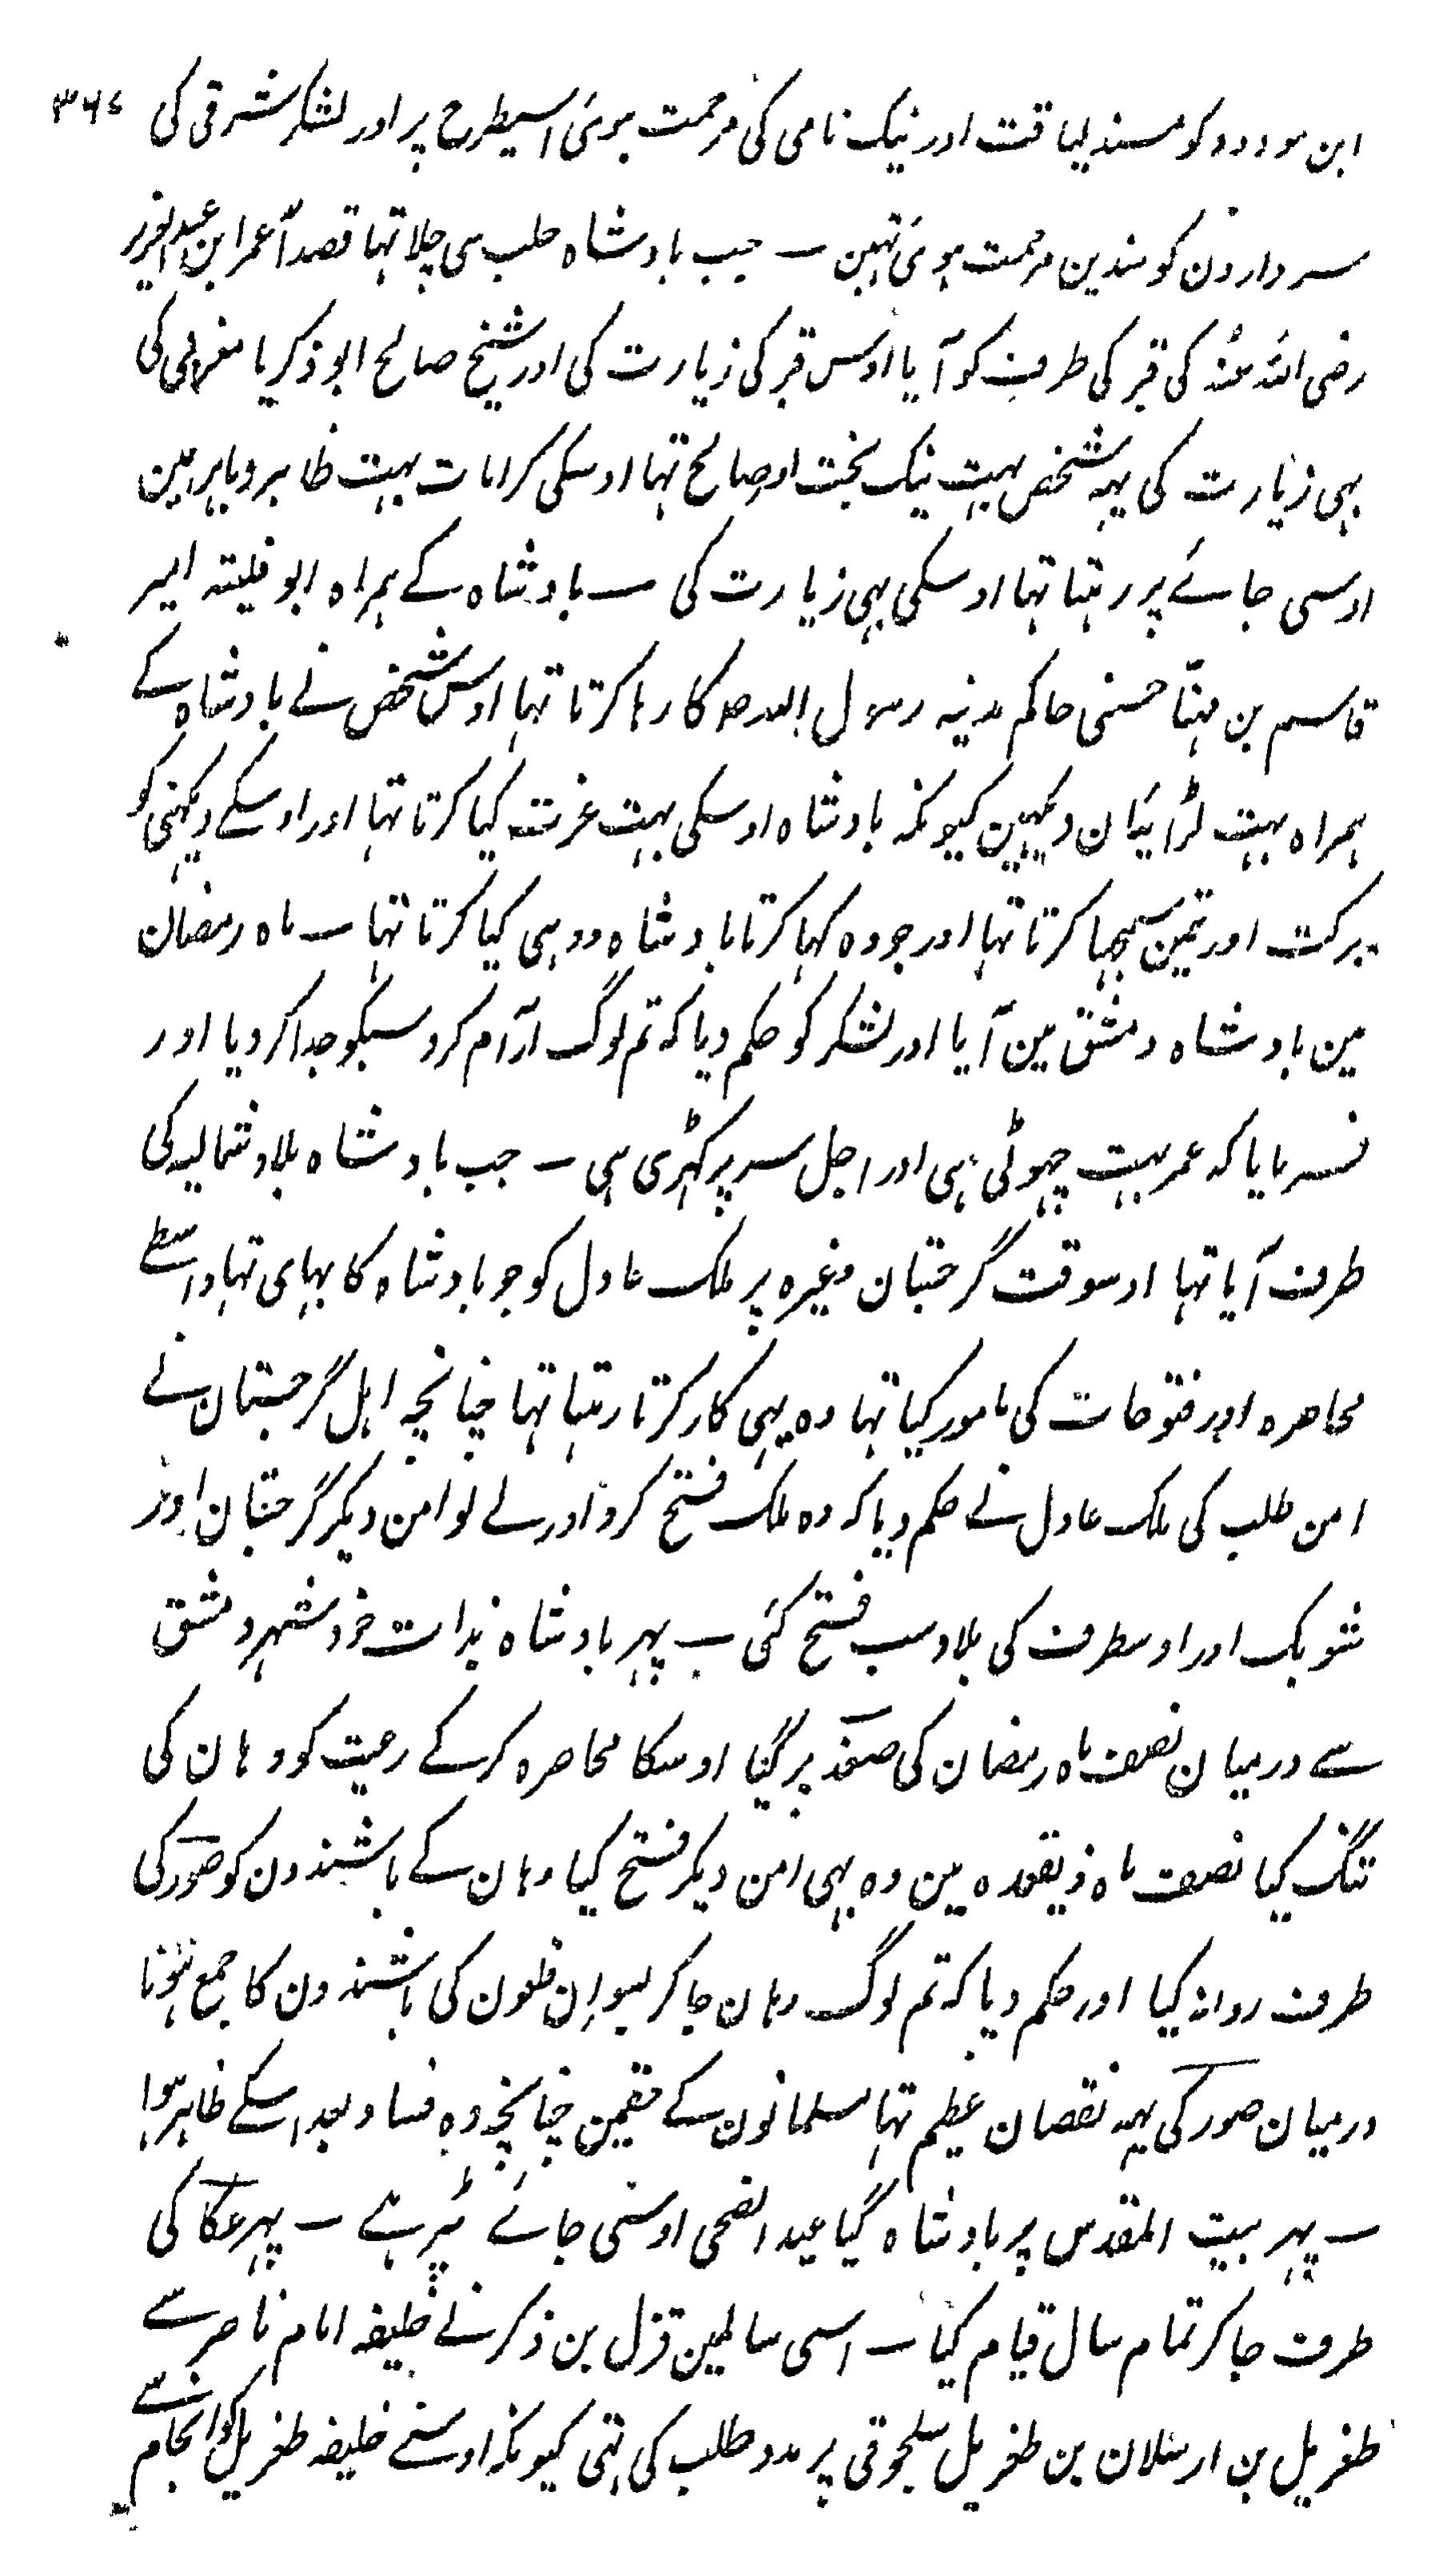 ۳۶۷
ابن مودود کو مسند لیاقت اور نیک نامی کی مرحمت ہوئی اسیطرح پر اور لشکر شرقی کی
سردارون کو سندین مرحمت ہوئی تہین ـ جب بادشاہ حلب سی چلا تہا قصداً عمر ابن عبد العزیز
رضی اللہ عنہ کی قبر کی طرف کو آیا اوس قبر کی زیارت کی اور شیخ صالح ابو ذکریا مغربی کی
بہی زیارت کی یہہ شخص بہت نیک بخت اور صالح تہا اوسکی کرامات بہت ظاہر و باہر ہین
اوسی جائے پر رہتا تہا اوسکی بہی زیارت کی ـ بادشاہ کے ہمراہ ابو فلیتہ امیر
قاسم بن مہنّا حسنی حاکم مدینہ رسول اللہ صلہ کا رہا کرتا تہا اوس شخص نے بادشاہ کے
ہمراہ بہت لڑائیان دیکہین کیونکہ بادشاہ اوسکی بہت عزت کیا کرتا تہا اور اوسکے دیکہنی کو
برکت اور تیمن سمجہا کرتا تہا اور جو وہ کہا کرتا بادشاہ وہ ہی کیا کرتا تہا ـ ماہ رمضان
مین بادشاہ دمشق مین آیا اور لشکر کو حکم دیا کہ تم لوگ آرام کرو سبکو جدا کر دیا اور
فرمایا کہ عمر بہت چہوٹی ہی اور اجل سر پر کہڑی ہی ـ جب بادشاہ بلاد شمالیہ کی
طرف آیا تہا اوسوقت گرجستان وغیرہ پر ملک عادل کو جو بادشاہ کا بہای تہا واسطے
محاصرہ اور فتوحات کی مامور کیا تہا وہ یہی کار کرتا رہتا تہا چنانچہ اہل گرجستان نے
امن طلب کی ملک عادل نے حکم دیا کہ وہ ملک فتح کرو اور لے لو امن دیکر گرجستان اور
شوبک اور اوسطرف کی بلاد سب فتح کئی ـ پہر بادشاہ بذات خود شہر دمشق
سے درمیان نصف ماہ رمضان کی صفد پر گیا اوسکا محاصرہ کرکے رعیت کو وہان کی
تنگ کیا نصف ماہ ذیقعدہ مین وہ بہی امن دیکر فتح کیا وہان کے باشندون کو صور کی
طرف روانہ کیا اور حکم دیا کہ تم لوگ وہان جا کر بسو ان قلعون کی باشندون کا جمع ہونا
درمیان صور کی یہہ نقصان عظیم تہا مسلمانون کے حقمین چنانچہ وہ فساد بعد اسکے ظاہر ہوا
ـ پہر بیت المقدس پر بادشاہ گیا عید الضحی اوسی جائے پڑہے ـ پہر عکا کی
طرف جا کر تمام سال قیام کیا ـ اسی سالمین قزل بن ذکر نے خلیفہ امام ناصر سے
طغریل بن ارسلان بن طغریل سلجوقی پر مدد طلب کی تہی کیونکہ اوسنے خلیفہ طغریل کو انجام